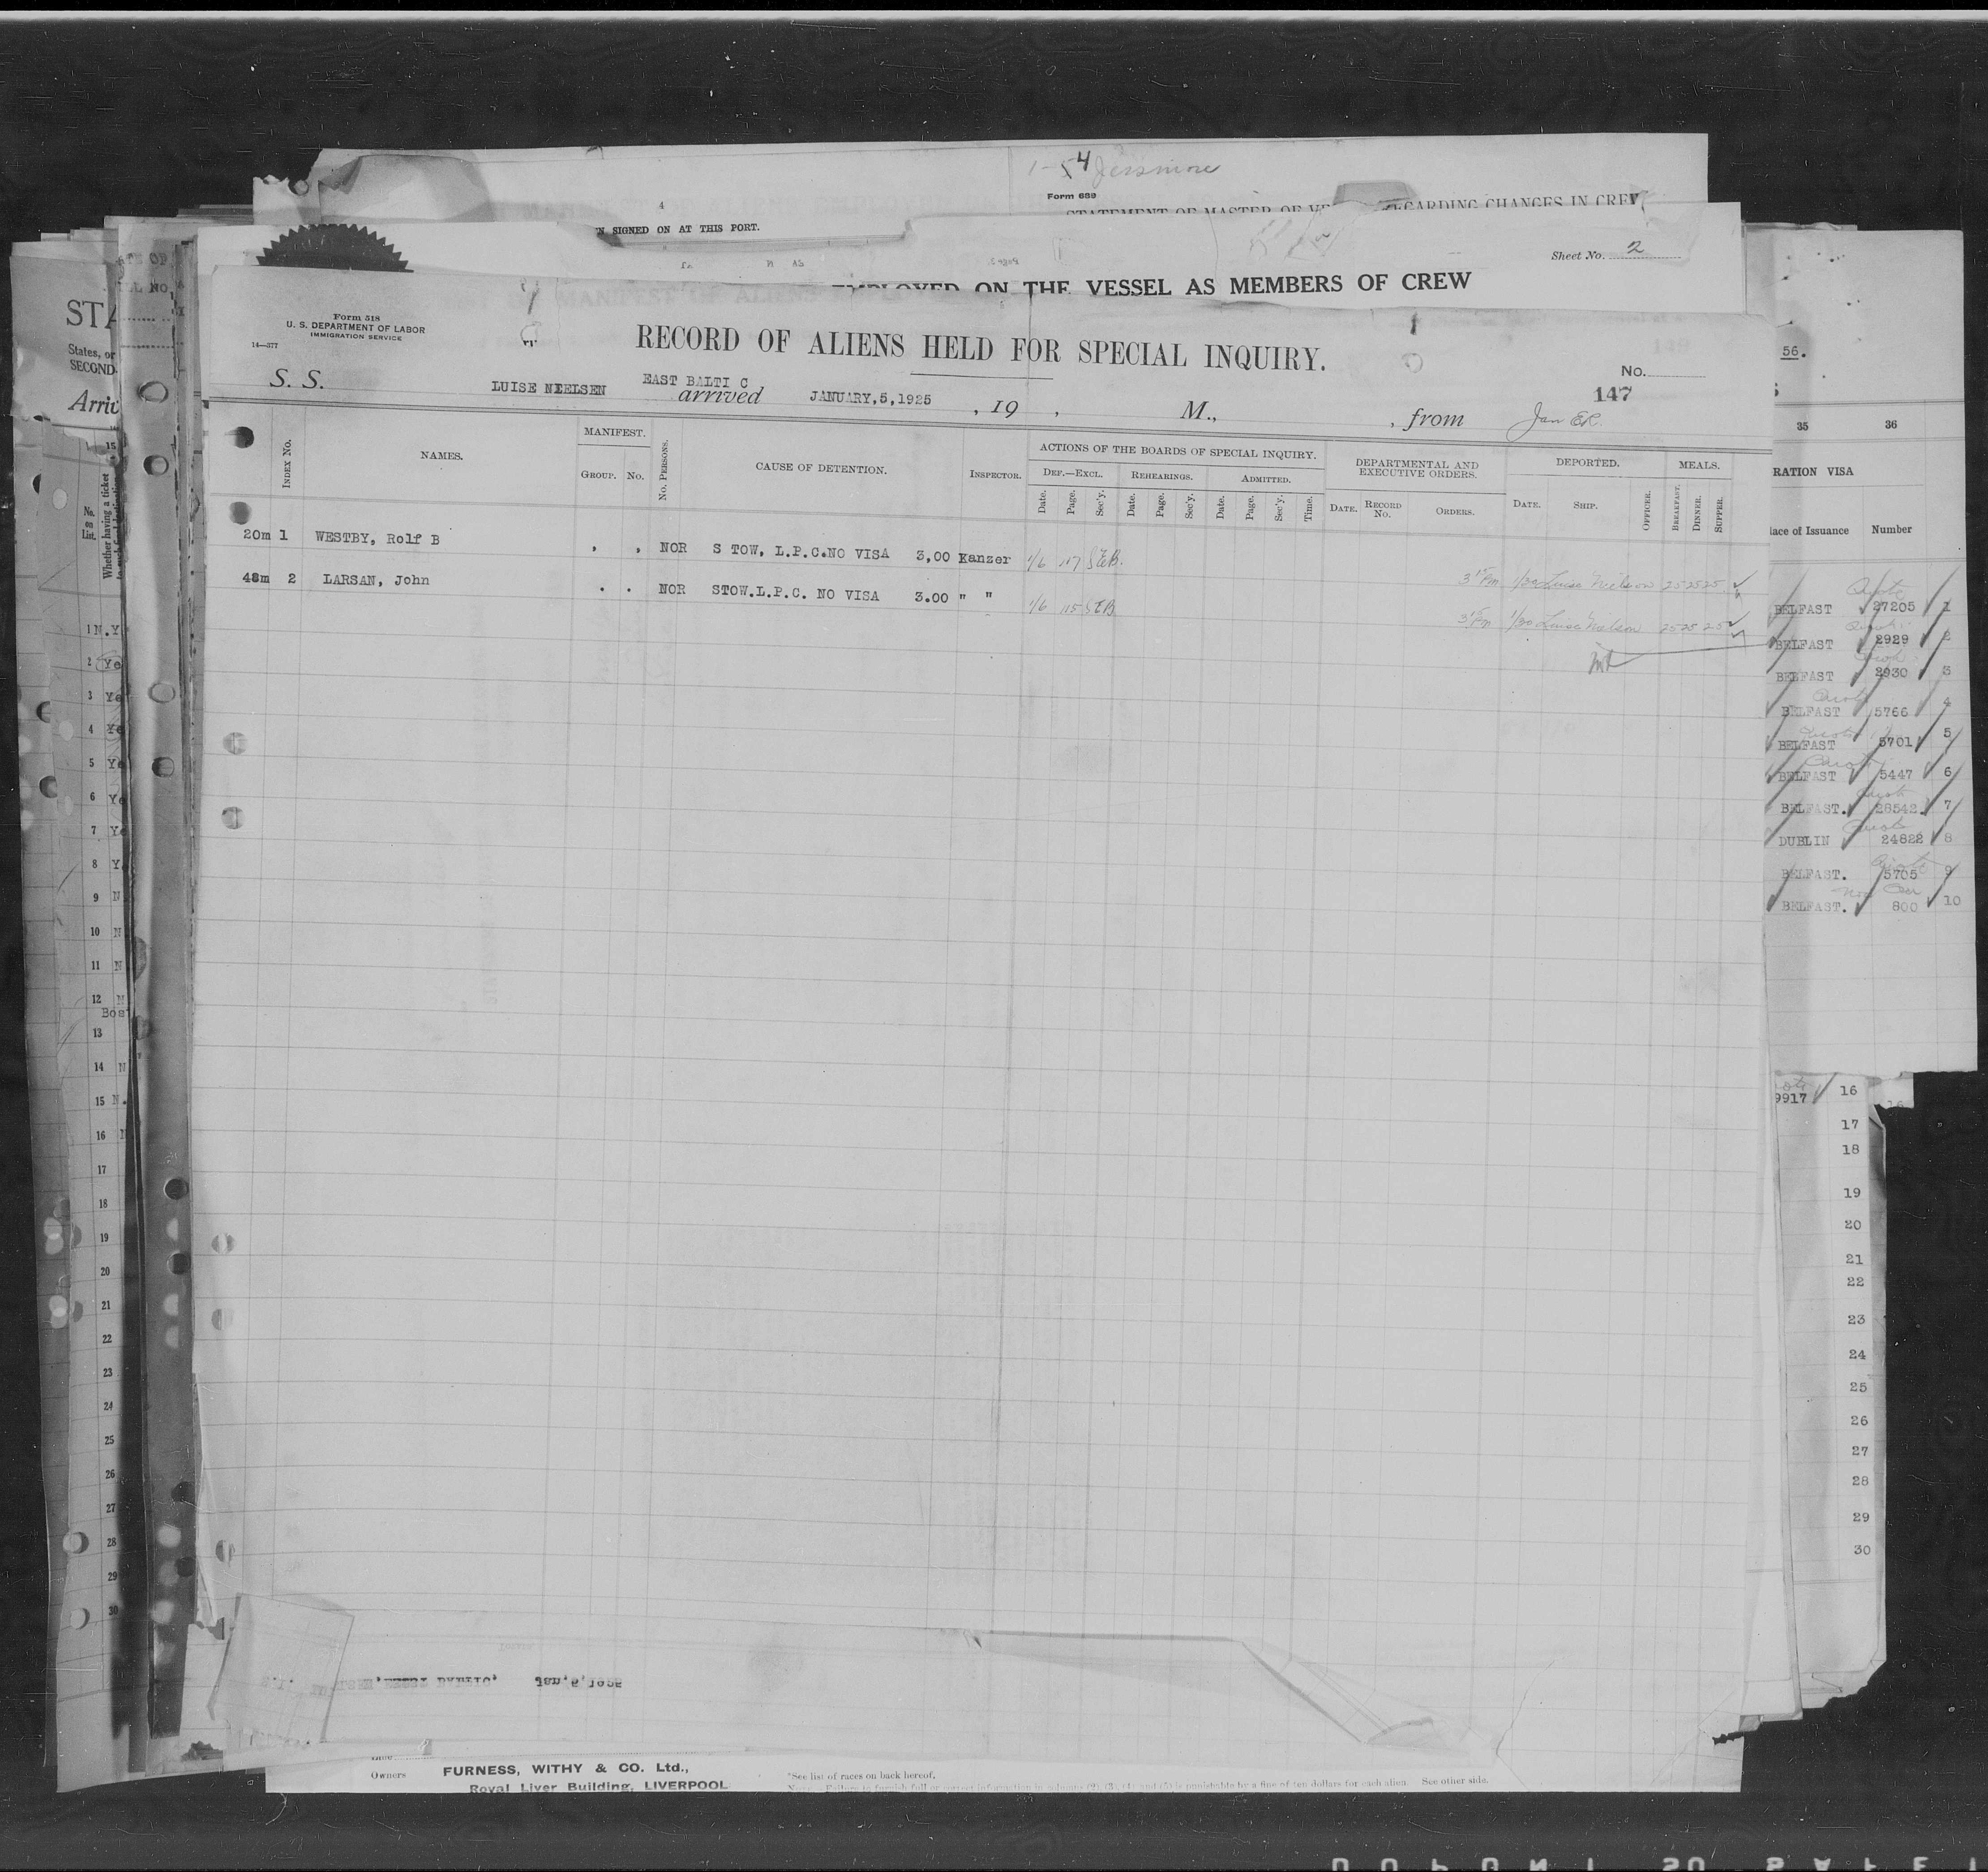 1-54 Jersmore
Form 689
STATEMENT OF MASTER OF VE REGARDING CHANGES IN CREW
4
N SIGNED ON AT THIS PORT.
Sheet No. 2
EMPLOYED ON THE VESSEL AS MEMBERS OF CREW
Form 518
U. S. DEPARTMENT OF LABOR
IMMIGRATION SERVICE
14—377
RECORD OF ALIENS HELD FOR SPECIAL INQUIRY.
No.
147
S. S. LUISE NIELSEN EAST BALTI C arrived JANUARY,5,1925 , 19 , M., , from Jan
INDEX No. NAMES. MANIFEST. GROUP. No. No. PERSONS. CAUSE OF DETENTION. INSPECTOR.
ACTIONS OF THE BOARDS OF SPECIAL INQUIRY.
DEF.—EXCL. REHEARINGS. ADMITTED.
Date. Page. Sec'y. Date. Page. Sec'y. Date. Page. Sec'y. Time.
DEPARTMENTAL AND EXECUTIVE ORDERS.
DATE. RECORD No. ORDERS.
DEPORTED.
DATE. SHIP. OFFICER.
MEALS.
BREAKFAST. DINNER. SUPPER.
20m 1 WESTBY, Rolf B , , NOR S TOW, L.P.C.NO VISA 3,00 Kanzer 1/6 117 SEB. 3 15 Pm 1/30 Luise Nielson 25 25 25
48m 2 LARSAN, John . . NOR STOW.L.P.C. NO VISA 3.00 " " 1/6 115 SEB 3 15 Pm 1/30 Luise Nielson 25 25 25
STA
States, or
SECOND
Arriv
No. on List.
Whether having a ticket
15
1 N.Y
2 Ye
3 Ye
4 Ye
5 Ye
6 Ye
7 Ye
8 Y
9 N
10 N
11 N
12 N
Bos
13
14 N
15 N.
16 N
17
18
19
20
21
22
23
24
25
26
27
28
29
30
56.
35 36
RATION VISA
lace of Issuance Number
BELFAST 27205 1
BELFAST 2929 2
BELFAST 2930 3
BELFAST 5766 4
BELFAST 5701 5
BELFAST 5447 6
BELFAST. 28542. 7
DUBLIN 24822 8
BELFAST. 5705 9
BELFAST. 800 10
9917 16
17
18
19
20
21
22
23
24
25
26
27
28
29
30
Owners FURNESS, WITHY & CO. Ltd.,
Royal Liver Building, LIVERPOOL
*See list of races on back hereof.
Note.—Failure to furnish full or correct information in columns (2), (3), (4) and (5) is punishable by a fine of ten dollars for each alien. See other side.